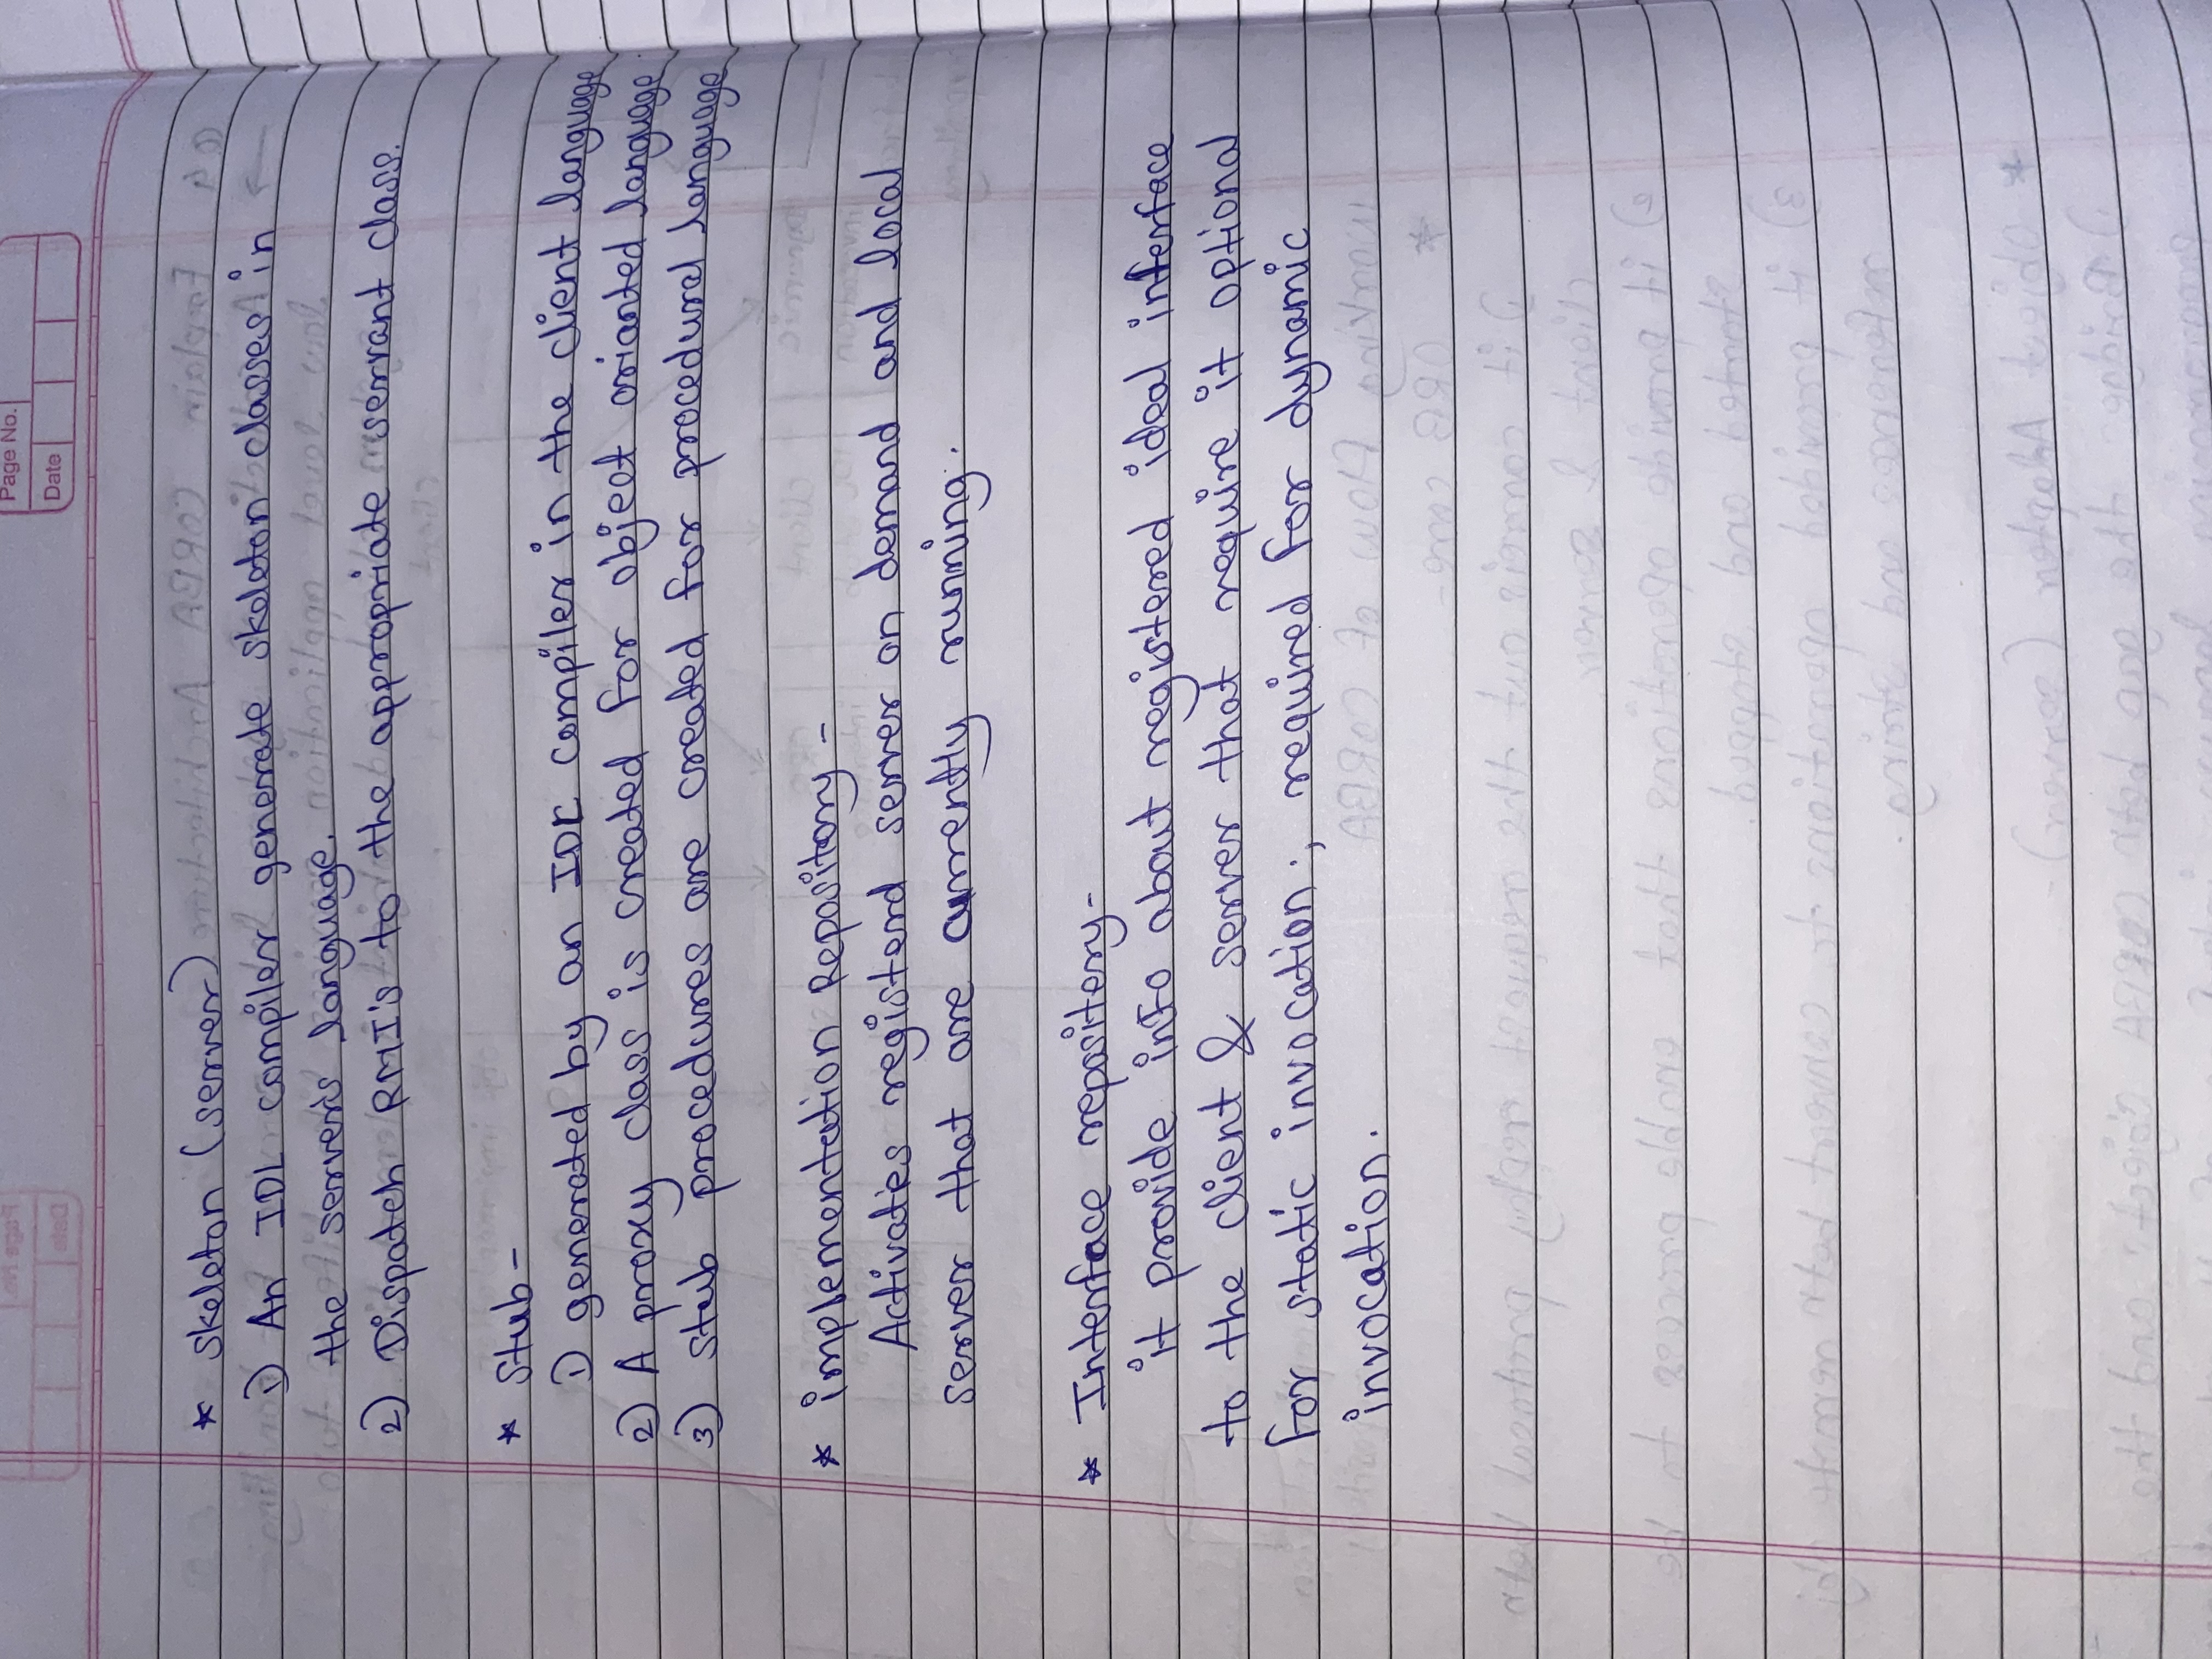 Page No.
Date
* Skeleton (server)
1) An IDL compiler generate skeleton classes in
the server's language.
2) Dispatch RMI's to the appropriate servant class.
* Stub -
1) generated by an IDL compiler in the client language
2) A proxy class is created for object orianted language
3) stub procedures are created for procedural language
* implementation Repository -
Activaties registerd server on demand and local
server that are currently running.
* Interface repositery -
it provide info about registered ideal interface
to the client & server that require it optional
for static invocation ; required for dynamic
invocation.